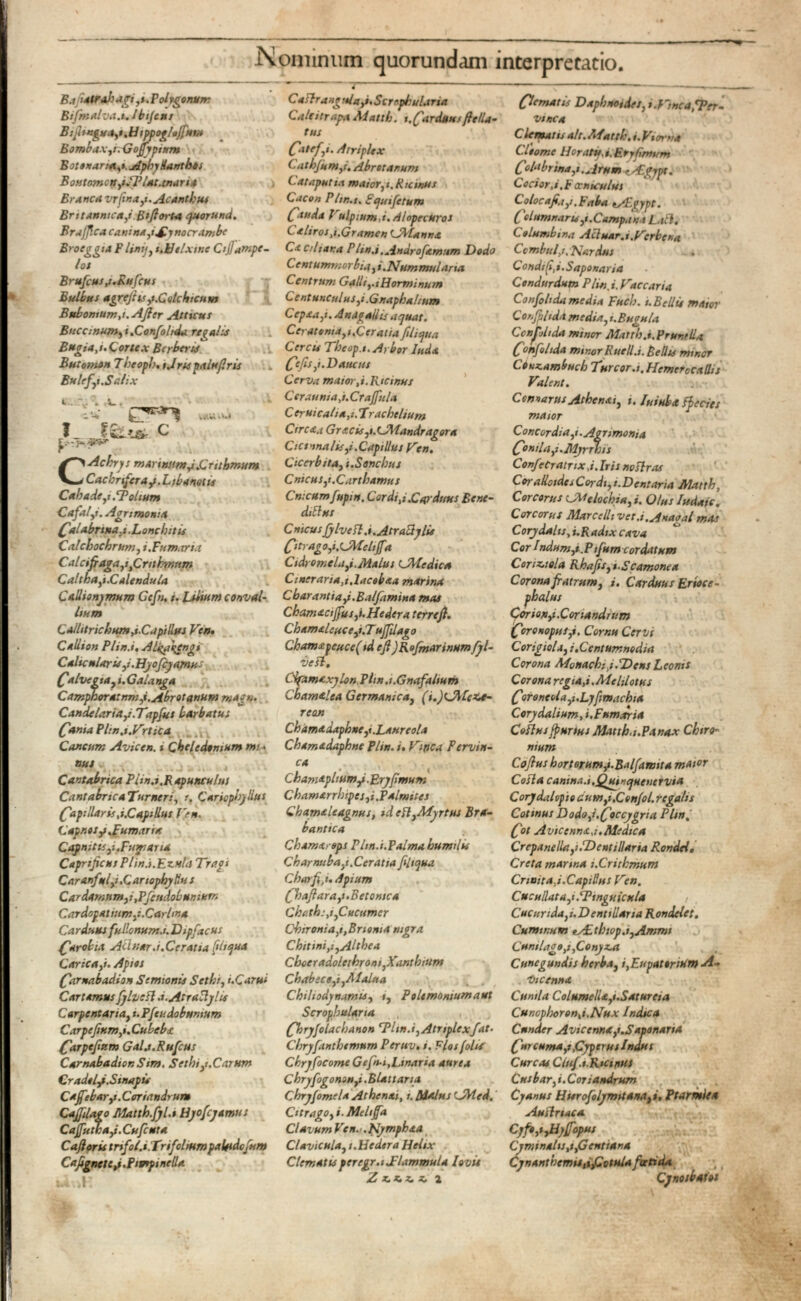 Nominum quorundam interpretatio.
Basiatrahagi,i.Polygonum
Bismalva.i.Ibiscus
Bislingua,i.Hippoglossum
Bombax,i.Gossypium
Botonaria,i.Aphyllanthos
Boutomon,i.Platanaria
Branca ursina,i.Acanthus
Britannica,i Bistorta quorund.
Brassica canina,i.Cynocrambe
Broeggia Plinij, i.Helxine Cissampe-
los
Bruscus,i.Ruscus
Bulbus agrestis,i.Colchicum
Bubonium,i.Aster Atticus
Buccinum,i.Consolida regalis
Bugia,i.Cortex Berberis
Butomon Theoph.i.Iris palustris
Bulef,i.Salix
C
CAchrys marinum,i.Crithmum
Cachrifera,i.Libanotis
Cahade,i.Polium
Cafal,i.Agrimonia
Calabrina,i.Lonchitis
Calchochrum, i.Fumaria
Calcifraga,i.Crithmum
Caltha,i.Calendula
Callionymum Gesn. i. Lilium conval-
lium
Callitrichum,i.Capillus Ven.
Callion Plin.i. Alkakengi
Calicularis,i.Hyoscyamus
Calvegia,i.Galanga
Camphoratnm,i.Abrotanum magn.
Candelaria,i.Tapsus barbatus
Cania Plin.i.Vrtica
Cancum Avicen. i Cheledonium mi-
nus
Cantabrica Plin.i.Rapunculus
Cantabrica Turneri, i. Cariophyllus
Capillaris,i.Capillus Ven.
Capnos,i.Fumaria
Capnitis,i.Fumaria
Caprificus Plin.i.Ezula Tragi
Caranful,i.Cariophyllus
Cardamum,i.Pseudobunium
Cardopatium,i.Carlina
Carduus fullonum.i.Dipsacus
Carobia Actuar.i.Ceratia siliqua
Carica,i. Apios
Carnabadion Semionis Sethi, i.Carui
Cartamus sylvest.i.Atractylis
Carpentaria, i.Pseudobunium
Carpesium,i.Cubebæ
Carpesium Gal.i.Ruscus
Carnabadion Sim. Sethi,i.Carum
Cradel,i.Sinapis
Cassebar,i.Coriandrum
Cassilago Matth.syl.i Hyoscyamus
Cassutha,i.Cuscuta
Castoris trifol.i.Trifolium paludosum
Casignete,i.Pimpinella
Castrangula,i.Scrophularia
Calcitrapa Matth. i.Carduus stella-
tus
Catef,i. Atriplex
Cathsum,i. Abrotanum
Cataputia maior,i.Ricinus
Cacon Plin.i. Equisetum
Cauda Vulpium.i. Alopecuros
Caliros,i.Gramen Mannæ
Cæciliana Plin.i.Androsæmum Dodo
Centummorbia,i.Nummularia
Centrum Galli,.iHorminum
Centunculus,i.Gnaphalium
Cepæa,i. Anagallis aquat.
Ceratonia,i.Ceratia siliqua
Cercis Theop.i.Arbor Iudæ
Cesis,i.Daucus
Cerva maior,i.Ricinus
Ceraunia,i.Crassula
Ceruicalia,i.Trachelium
Circæa Græcis,i.Mandragora
Cicinnalis,i.Capillus Ven.
Cicerbita, i.Sonchus
Cnicus,i.Carthamus
Cnicum supin. Cordi,i.Carduus Bene-
dictus
Cnicus sylvest.i.Atractylis
Citrago,i.Melissa
Cidromela,i.Malus Medica
Cineraria,i.Iacobæa marina
Charantia,i.Balsamina mas
Chamæcissus,i.Hedera terrest.
Chamæleuce,i.Tussilago
Chamæpeuce(id est)Rosmarinum syl-
vest.
Chamæxylon Plin.i.Gnafalium
Chamælea Germanica, (i.)Meze-
reon
Chamædaphne,i.Laureola
Chamædaphne Plin. i. Vinca Pervin-
ca
Chamæplium,i.Erysimum
Chamærrhipes,i.Palmites
Chamæleagnus, id est,Myrtus Bra-
bantica
Chamærops Plin.i.Palma humilis
Charnuba,i.Ceratia siliqua
Charsi,i. Apium
Chastara,i.Betonica
Chath:,i,Cucumer
Chironia,i,Brionia nigra
Chitini,i,Althea
Choeradolethroni,Xanthium
Chabece,i,Malua
Chiliodynamis, i, Polemonium aut
Scrophularia
Chrysolachanon Plin.i,Atriplex sat.
Chrysanthemum Peruv. i. Flos solis
Chrysocome Gesn.i,Linaria aurea
Chrysogonon,i.Blattaria
Chrysomela Athenæi, i. Malus Med.
Citrago, i. Melissa
Clavum Ven.. Nymphæa
Clavicula, i.Hedera Helix
Clematis peregr.i.Flammula Iovis
Zzzzz 2
Clematis Daphnoides, i.Vinca,Per-
vinca
Clematis alt.Matth.i.Viorna
Cleome Horatii.i.Erysimum
Colubrina,i.Arum Ægypt.
Cocior,i.Fœniculus
Colocasia,i.Faba Ægypt.
Columnaris,i.Campana Lact.
Columbina Actuar.i.Verbena
Combul,i.Nardus
Condisi,i.Saponaria
Condurdum Plin.i.Vaccaria
Consolida media Fuch. i.Bellis maior
Consolida media, i.Bugula
Consolida minor Matth.i.Prunella
Consolida minor Ruell.i.Bellis minor
Conzambuch Turcor.i.Hemerocallis
Valent.
Connarus Athenæi, i. Iuiubæ species
maior
Concordia,i.Agrimonia
Conila,i.Myrrhis
Consecratrix,i.Iris nostras
Coralloides Cordi,i.Dentaria Matth.
Corcorus Melochia, i. Olus Iudaic.
Corcorus Marcelli vet.i.Anagal mas
Corydalis, i.Radix cava
Cor Indum,i.Pisum cordatum
Coriziola Rhasis,i.Scamonea
Corona fratrum, i. Carduus Erioce-
phalus
Corion,i.Coriandrum
Coronopus,i. Cornu Cervi
Corigiola, i.Centumnodia
Corona Monachi,i.Dens Leonis
Corona regia,i.Melilotus
Coroneola,i.Lysimachia
Corydalium, i.Fumaria
Costus spurius Matth.i.Panax Chiro-
nium
Costus hortorum,i.Balsamita maior
Costa canina.i.Quinquenervia
Corydalopio dum,i.Consol.regalis
Cotinus Dodo,i.Coccygria Plin.
Cot Avicennæ,i.Medica
Crepanella,i.Dentillaria Rondel.
Creta marina i.Crithmum
Crinita,i.Capillus Ven.
Cucullata,i.Pinguicula
Cucurida,i.Dentillaria Rondelet.
Cuminum Æthiop.i,Ammi
Cunilago,i,Conyza
Cunegundis herba, i,Eupatorium A-
vicennæ
Cunila Columellæ,i.Satureia
Cunophoron,i.Nux Indica
Cunder Avicennæ,i.Saponaria
Curcuma,i,Cyperus Indus
Curcas Clus.i.Ricinus
Cusbar,i.Coriandrum
Cyanus Hierosolymitana,i. Ptarmica
Austriaca
Cyfe,i,Hyssopus
Cyminalis,i,Gentiana
Cynanthemis,i,Cotula fœtida
Cynosbatos